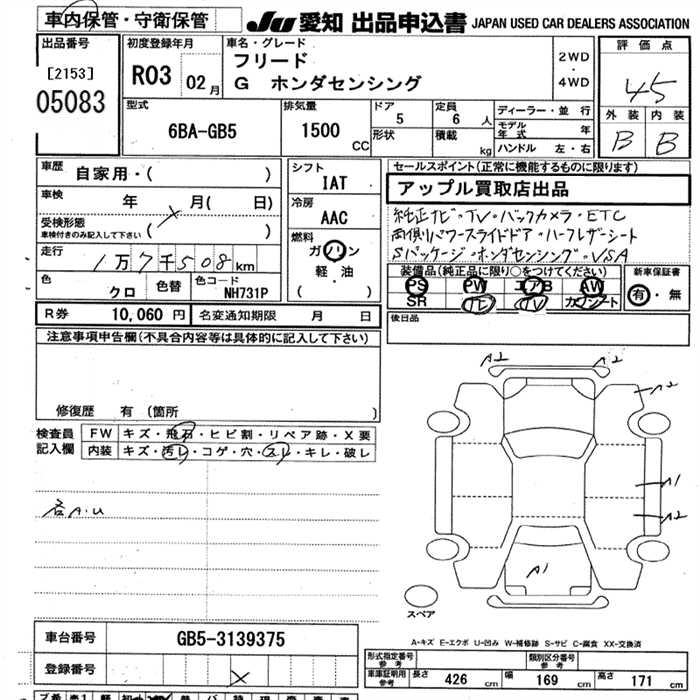 車内保管・守衛保管
JU 愛知 出品申込書 JAPAN USED CAR DEALERS ASSOCIATION
出品番号
[2153]
05083
初度登録年月
R03 02月
車名・グレード
フリード
G ホンダセンシング
2WD
・
4WD
評価点
4.5
外装 内装
B B
型式
6BA-GB5
排気量
1500
CC
ドア
5
形状
定員
6 人
積載
kg
ディーラー・並 行
モデル年式 年
ハンドル 左・右
車歴 自家用・( )
車検 年 月( 日)
受検形態
車検付きのみ記入して下さい ( )
走行
1万7千508km
色
クロ
色替
色コード
NH731P
シフト
IAT
冷房
AAC
燃料
ガソリン
軽・油
( )
セールスポイント(正常に機能するものに限ります)
アップル買取店出品
純正ナビ・TV・バックカメラ・ETC
両側パワースライドドア・ハーフレザーシート
Sパッケージ・ホンダセンシング・VSA
装備品(純正品に限り○をつけてください)
PS PW エアB AW
SR ナビ TV カワシート
新車保証書
有・無
後日品
R券 10,060 円 名変通知期限 月 日
注意事項申告欄(不具合内容等は具体的に記入して下さい)
修復歴 有 (箇所 )
検査員
記入欄
FW キズ・飛石・ヒビ割・リペア跡・X要
内装 キズ・汚レ・コゲ・穴・スレ・キレ・破レ
各A.U
A2 A2
A2
A1
A2
A1
スペア
A-キズ E-エクボ U-凹み W-補修跡 S-サビ C-腐食 XX-交換済
車台番号 GB5-3139375
登録番号
形式指定番号
参考
類別区分番号
参考
車庫証明用
参考
長さ 426 cm 幅 169 cm 高さ 171 cm